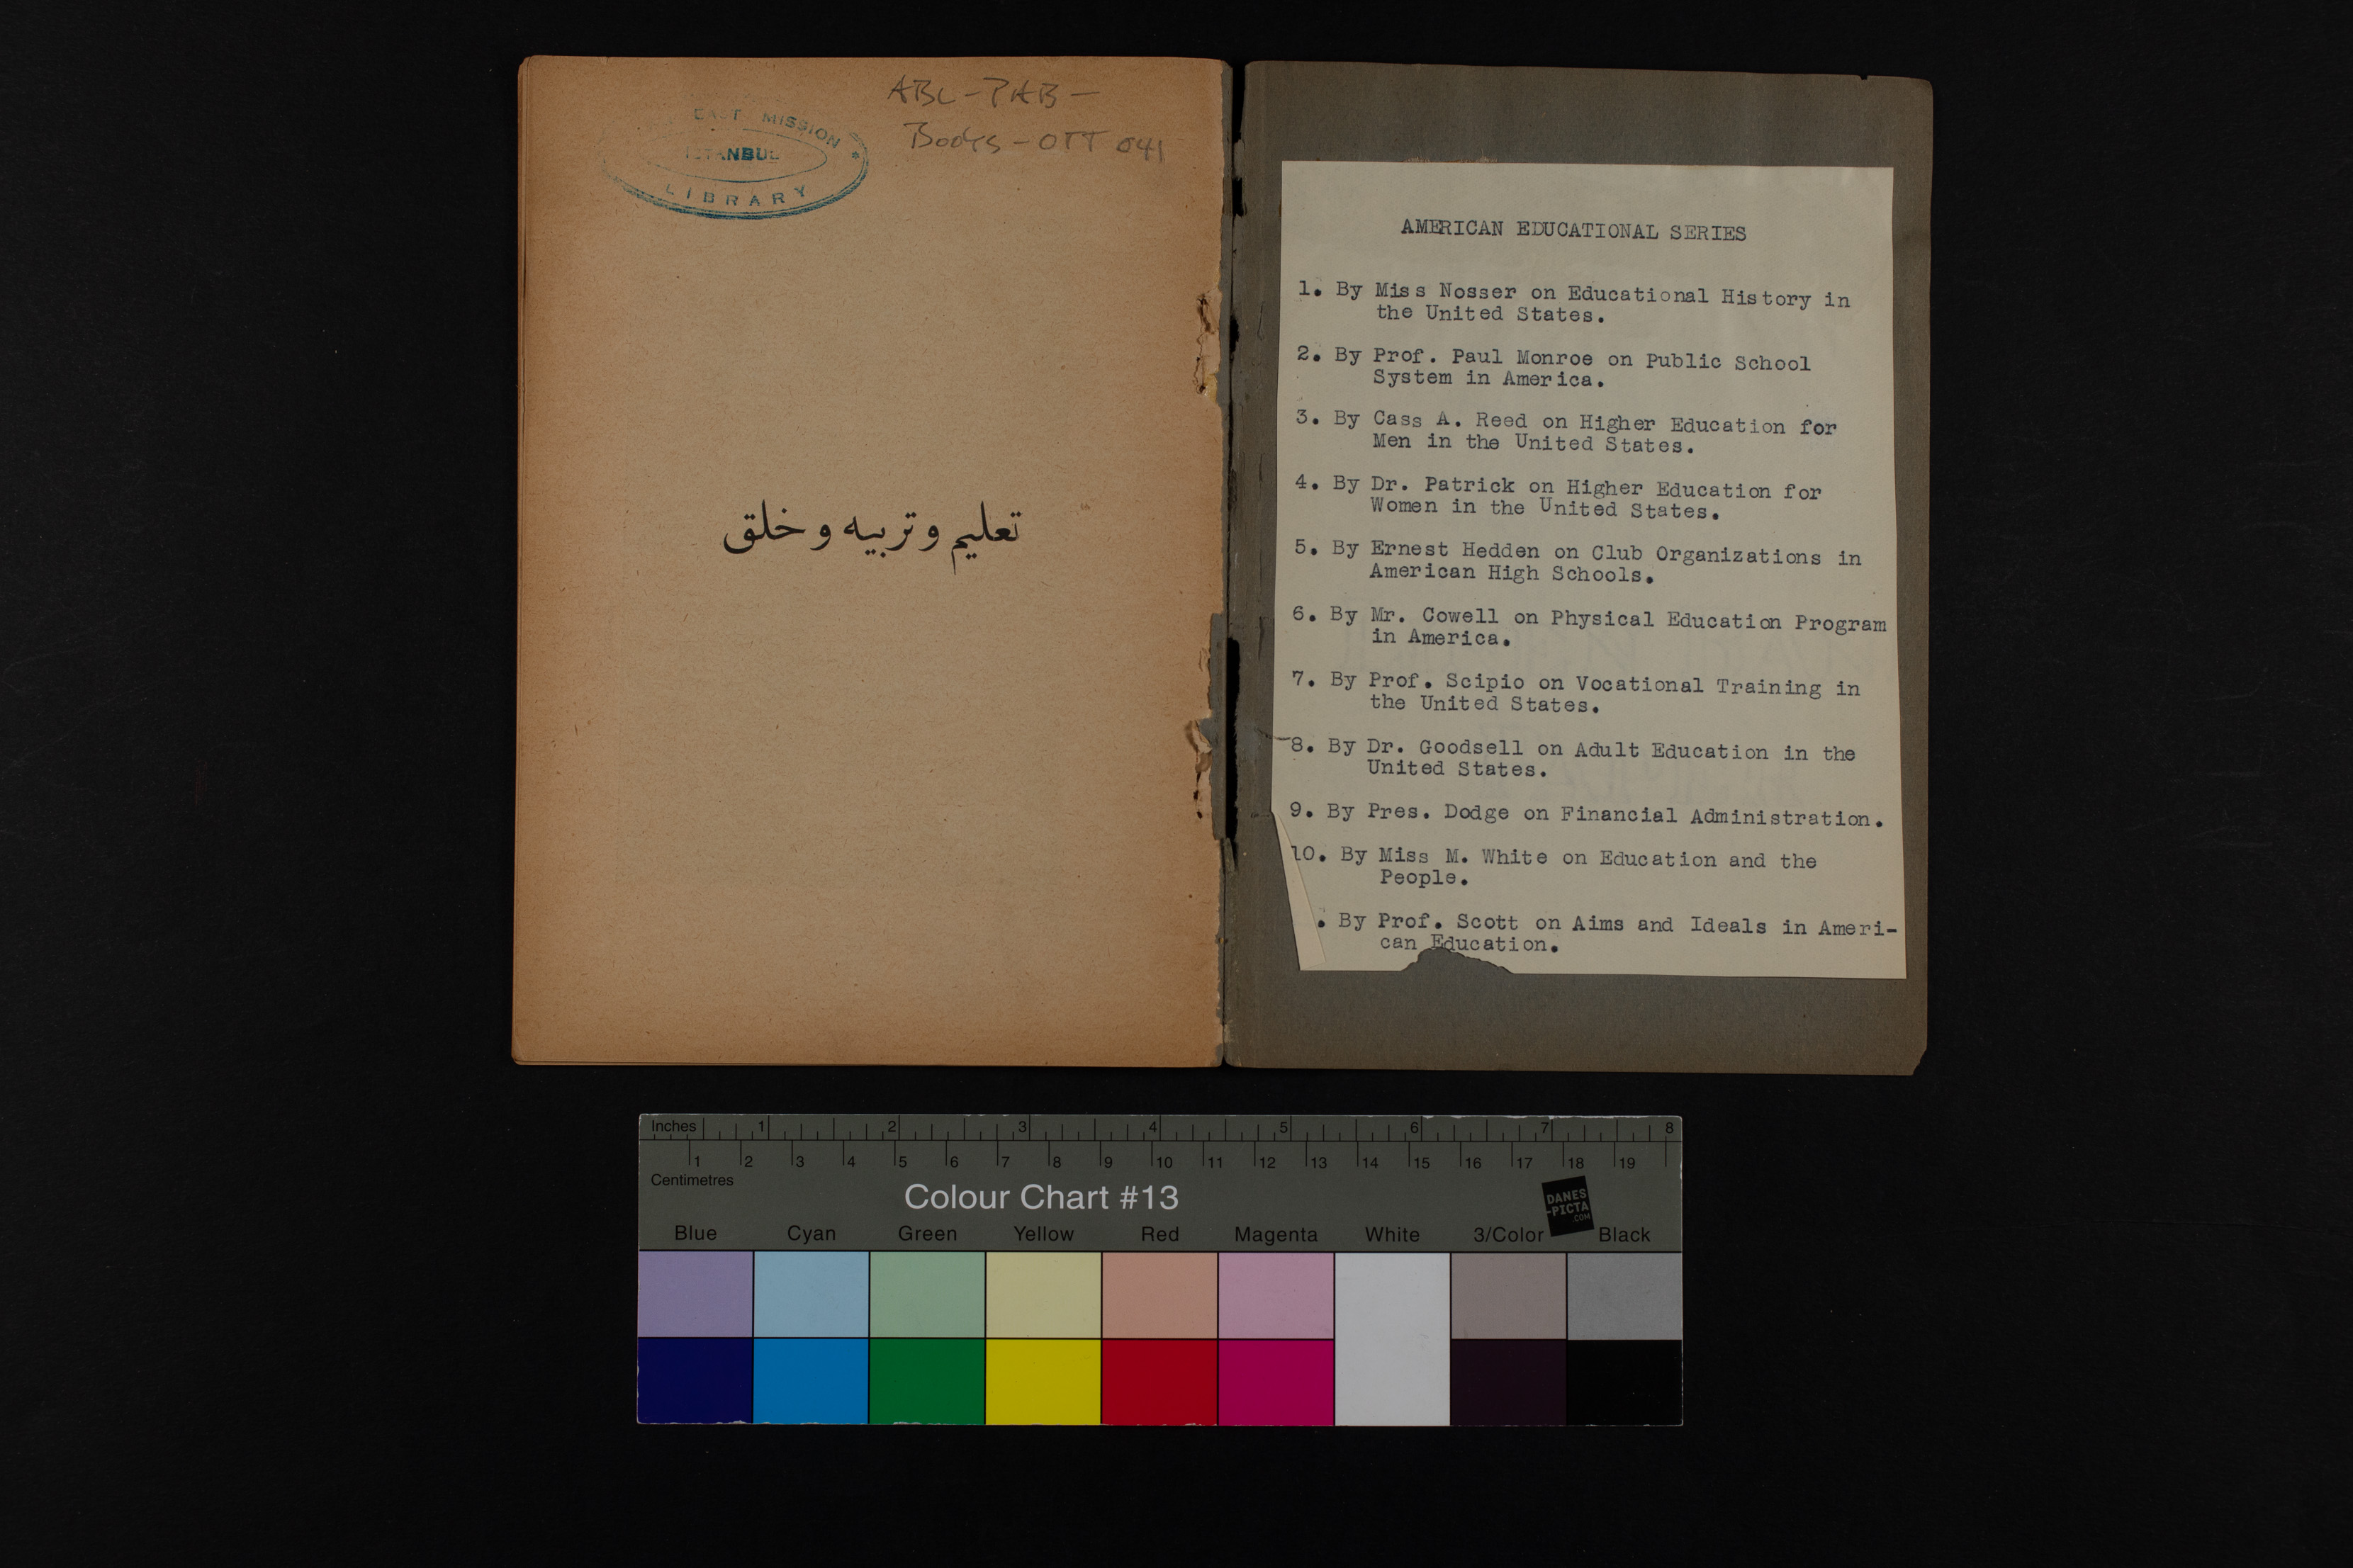 EAST MISSION
ISTANBUL
LIBRARY
ABC-PAB-
Books-OTT 041
تعليم و تربيه و خلق
AMERICAN EDUCATIONAL SERIES
1. By Miss Nosser on Educational History in
the United States.
2. By Prof. Paul Monroe on Public School
System in America.
3. By Cass A. Reed on Higher Education for
Men in the United States.
4. By Dr. Patrick on Higher Education for
Women in the United States.
5. By Ernest Hedden on Club Organizations in
American High Schools.
6. By Mr. Cowell on Physical Education Program
in America.
7. By Prof. Scipio on Vocational Training in
the United States.
8. By Dr. Goodsell on Adult Education in the
United States.
9. By Pres. Dodge on Financial Administration.
10. By Miss M. White on Education and the
People.
. By Prof. Scott on Aims and Ideals in Ameri-
can Education.
Inches 1 2 3 4 5 6 7 8
1 2 3 4 5 6 7 8 9 10 11 12 13 14 15 16 17 18 19
Centimetres
Colour Chart #13
DANES
-PICTA
.COM
Blue Cyan Green Yellow Red Magenta White 3/Color Black